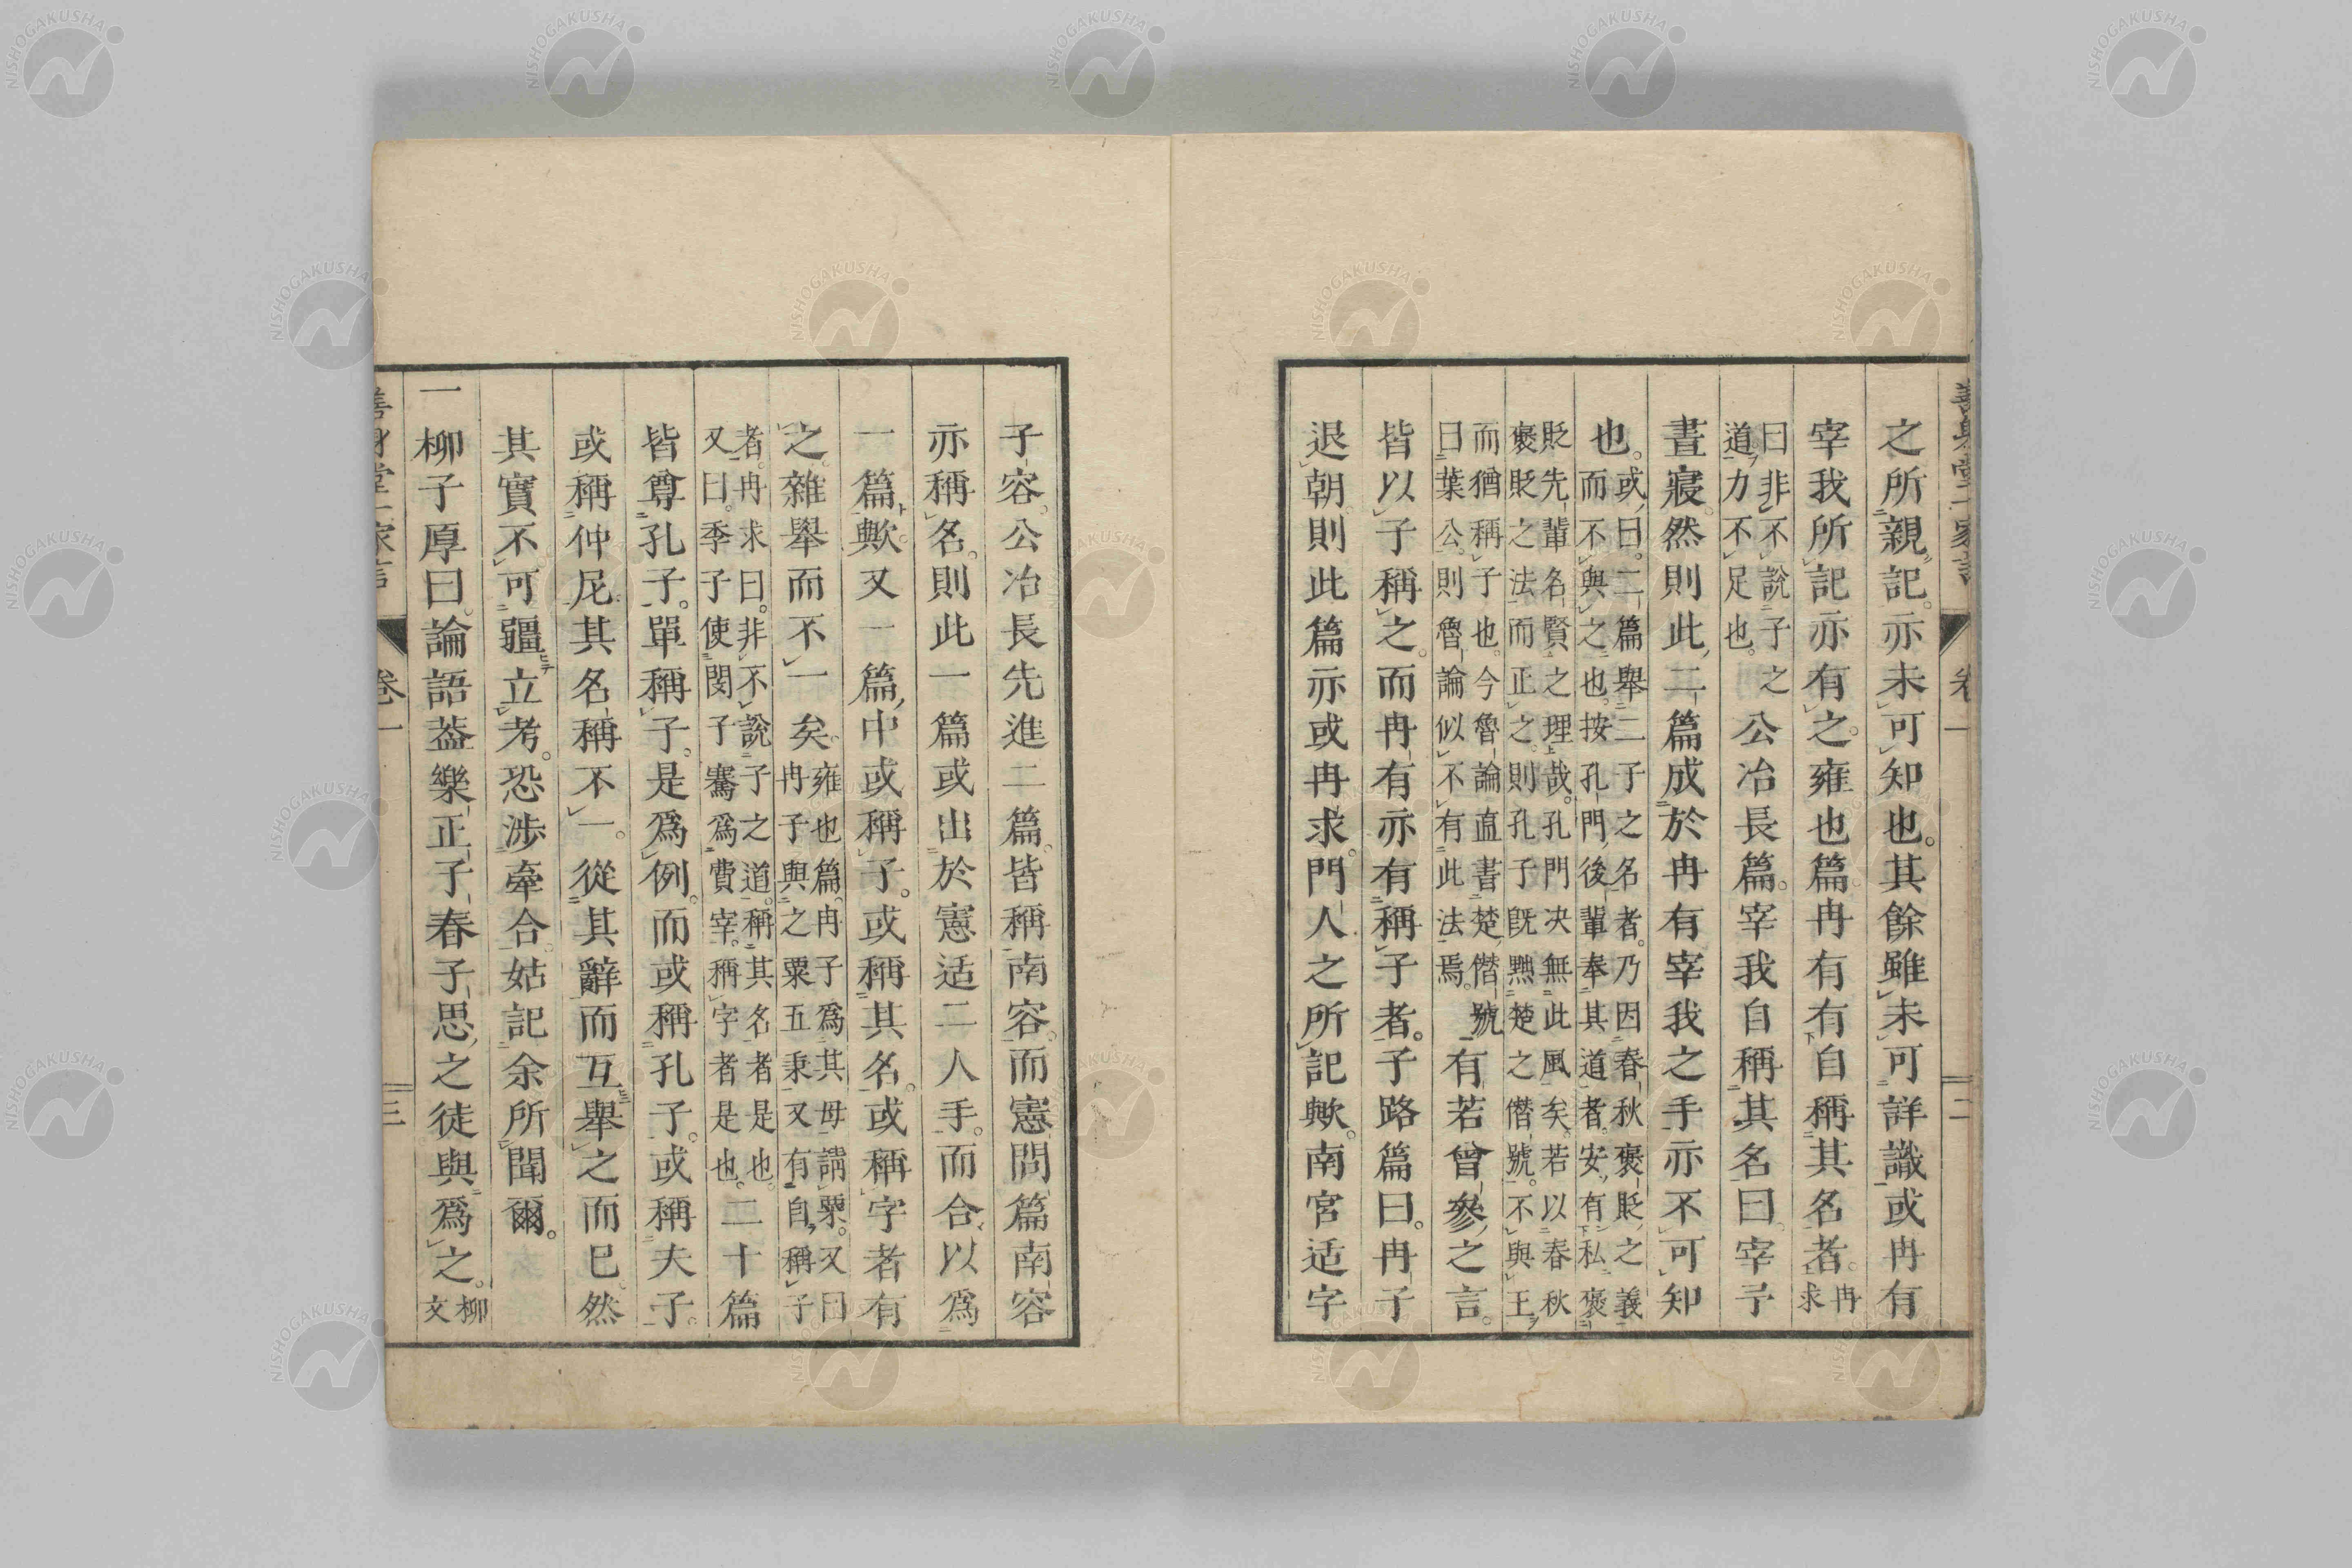 之所親記。亦未可知也。其餘雖未可詳識或冉有
宰我所記亦有之。雍也篇。冉有有自稱其名者。冉求
曰非不說子之道。力不足也。公冶長篇。宰我自稱其名曰。宰予
晝寢。然則此二篇成於冉有宰我之手亦不可知
也。或曰。二篇舉二子之名者。乃因春秋褒貶之義而不與之也。按孔門後輩奉其道者。安有私褒
貶先輩名賢之理哉。孔門决無此風矣。若以春秋褒貶之法而正之。則孔子既黜楚之僭號。不與王
而猶稱子也。今魯論直書楚僭號曰葉公。則魯論似不有此法焉。有若曾參之言。
皆以子稱之。而冉有亦有稱子者。子路篇曰。冉子
退朝。則此篇亦或冉求。門人之所記歟。南宮适字
子容。公冶長先進二篇。皆稱南容。而憲問篇南容
亦稱名。則此一篇或出於憲适二人手。而合以爲
一篇歟。又一篇中或稱子。或稱其名。或稱字者有
之。雜舉而不一矣。雍也篇。冉子爲其母請粟。又曰冉子與之粟五秉又有自稱子
者。冉求曰。非不說子之道。稱其名者是也。又曰。季子使閔子騫爲費宰。稱字者是也。二十篇
皆尊孔子。單稱子。是爲例。而或稱孔子。或稱夫子。
或稱仲尼其名稱不一。從其辭而互舉之而已。然
其實不可疆立考。恐涉牽合。姑記余所聞爾。
一柳子厚曰。論語葢樂正子春子思之徒與爲之。柳文
NISHOGAKUSHA